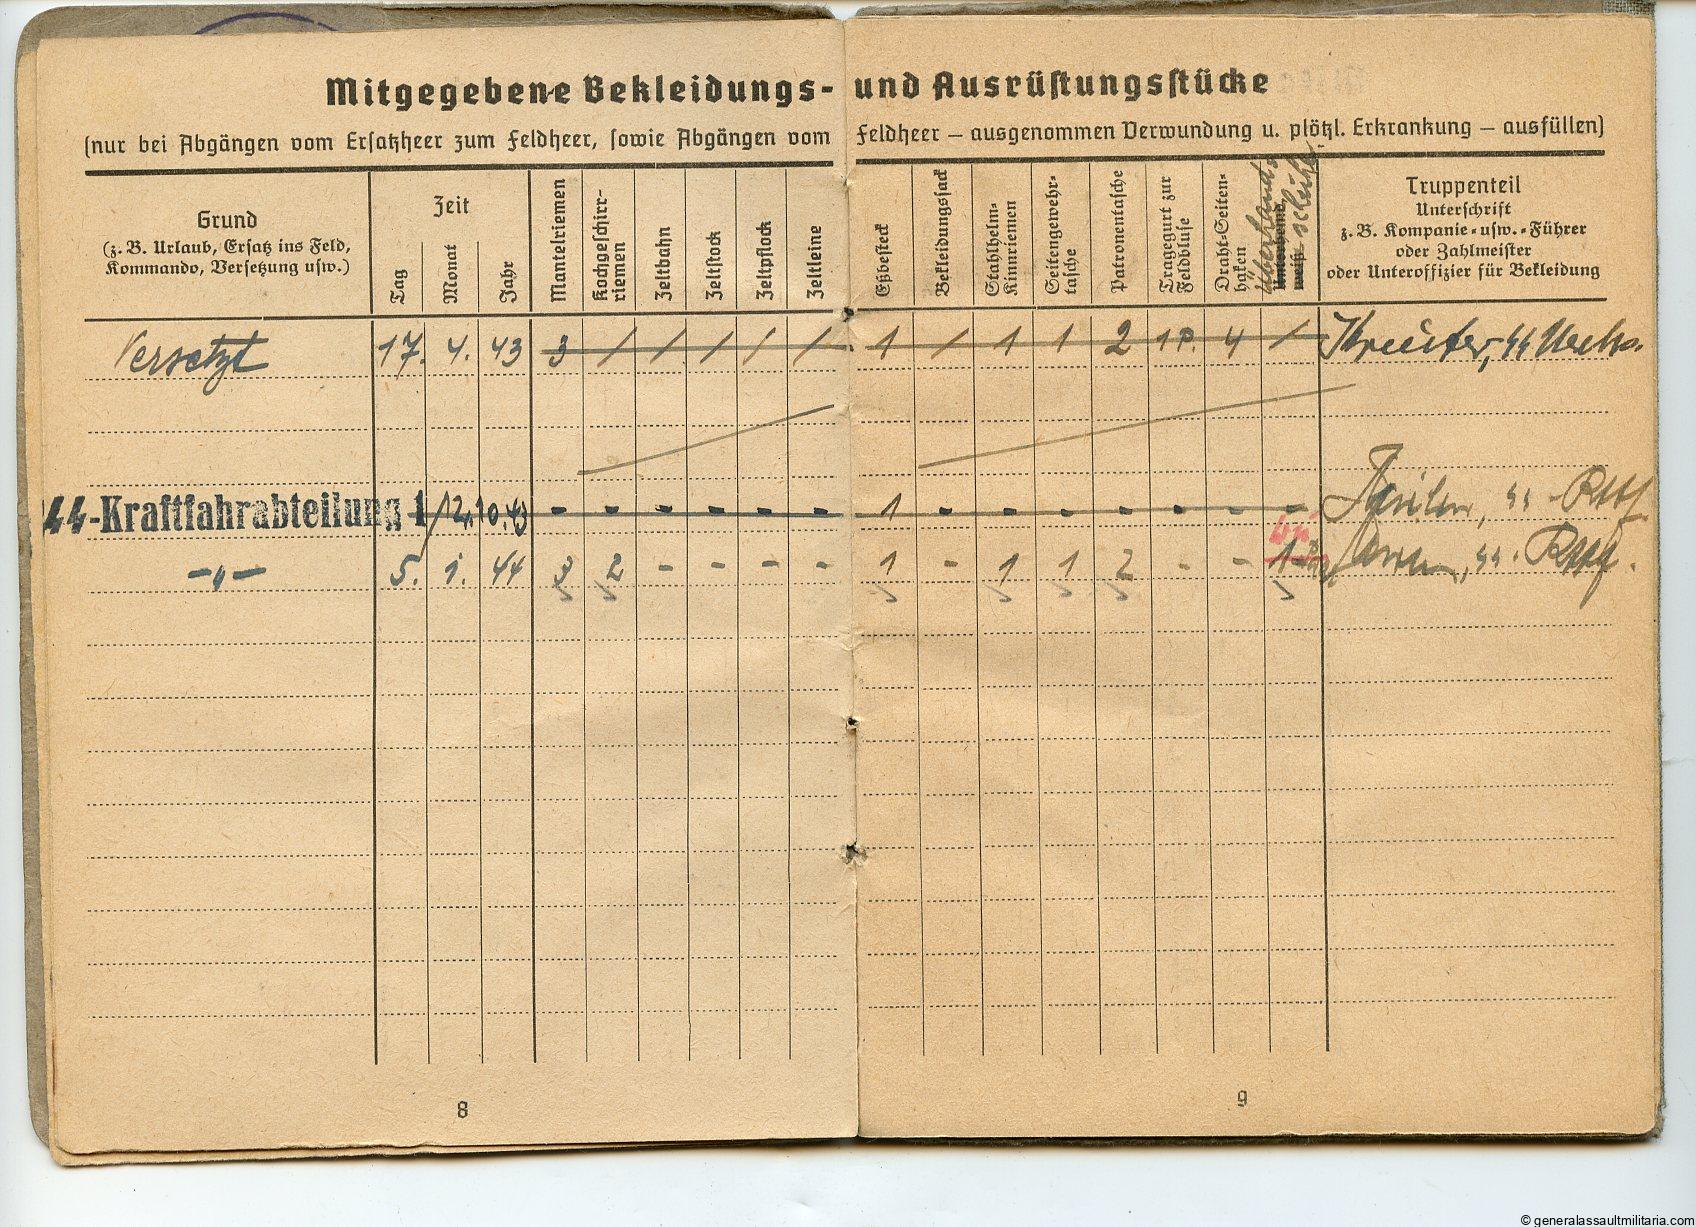 Mitgegebene Bekleidungs- und Ausrüstungsstücke
(nur bei Abgängen vom Ersatzheer zum Feldheer, sowie Abgängen vom Feldheer – ausgenommen Verwundung u. plötzl. Erkrankung – ausfüllen)
Grund
(z. B. Urlaub, Ersatz ins Feld,
Kommando, Versetzung usw.)
Zeit
Tag
Monat
Jahr
Mantelriemen
Kochgeschirr-
riemen
Zeltbahn
Zeltstock
Zeltpflock
Zeltleine
Eßbesteck
Bekleidungssack
Stahlhelm-
Kinnriemen
Seitengewehr-
tasche
Patronentasche
Tragegurt zur
Feldbluse
Draht-Seiten-
haken
Truppenteil
Unterschrift
z. B. Kompanie- usw. -Führer
oder Zahlmeister
oder Unteroffizier für Bekleidung
Versetzt 17. 4. 43 3 / / / / / 1 / 1 1 2 1 P. 4 /
ᛋᛋ-Kraftfahrabteilung 1 12. 10. 43 - - - - - - 1 - - - - - - -
-"- 5. 1. 44 3 2 - - - - 1 - 1 1 2 - - 1
8
9
© generalassaultmilitaria.com